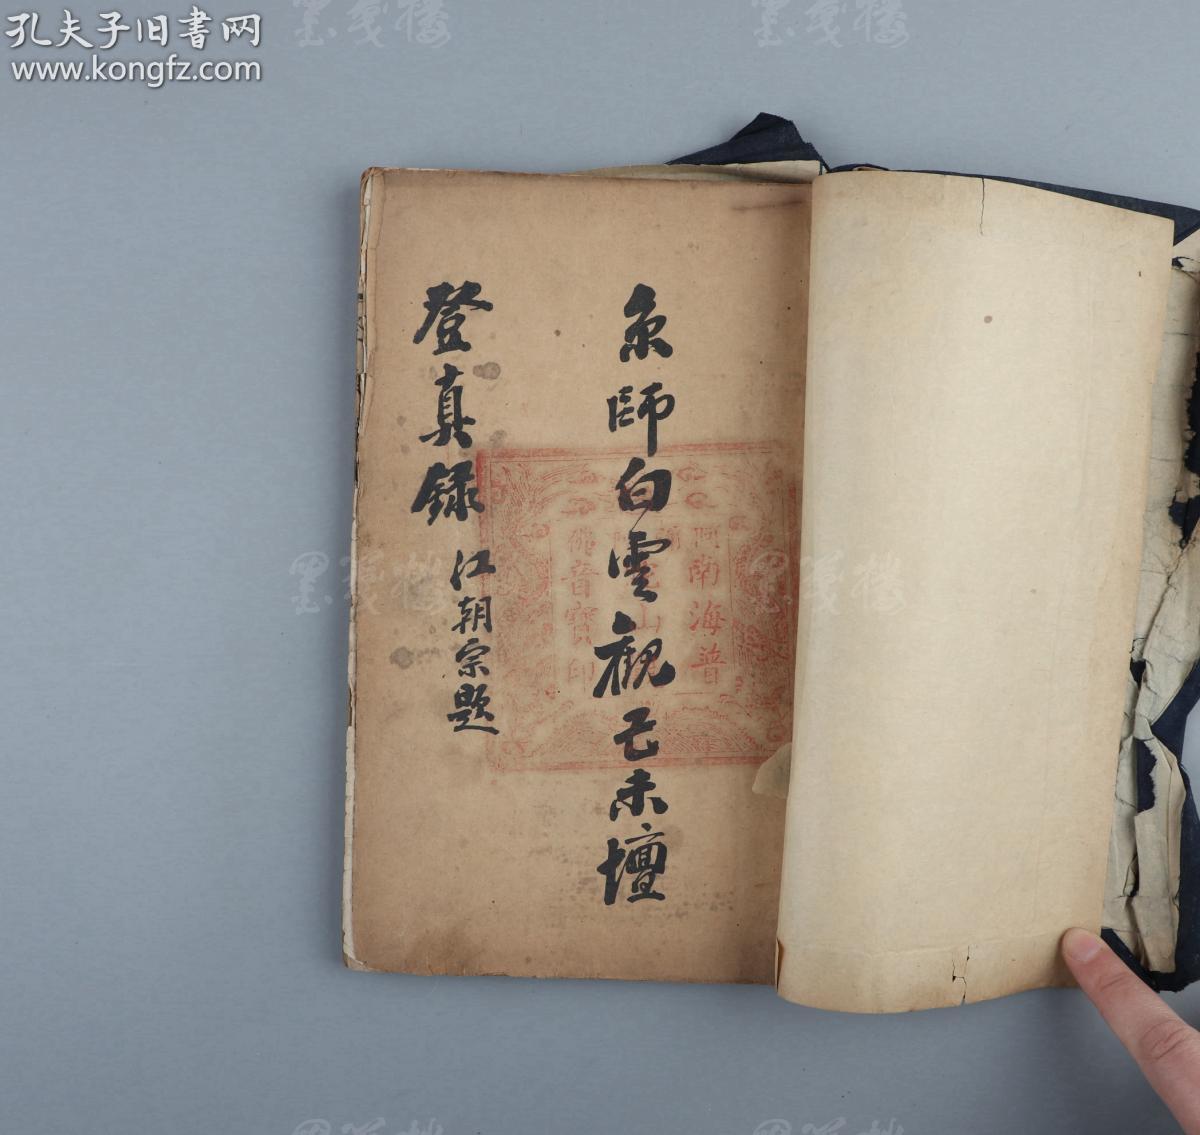 孔夫子旧書网
www.kongfz.com
京師白雲觀己未壇
登真録
江朝宗題
南海普
山
佛音寶印
墨笺楼